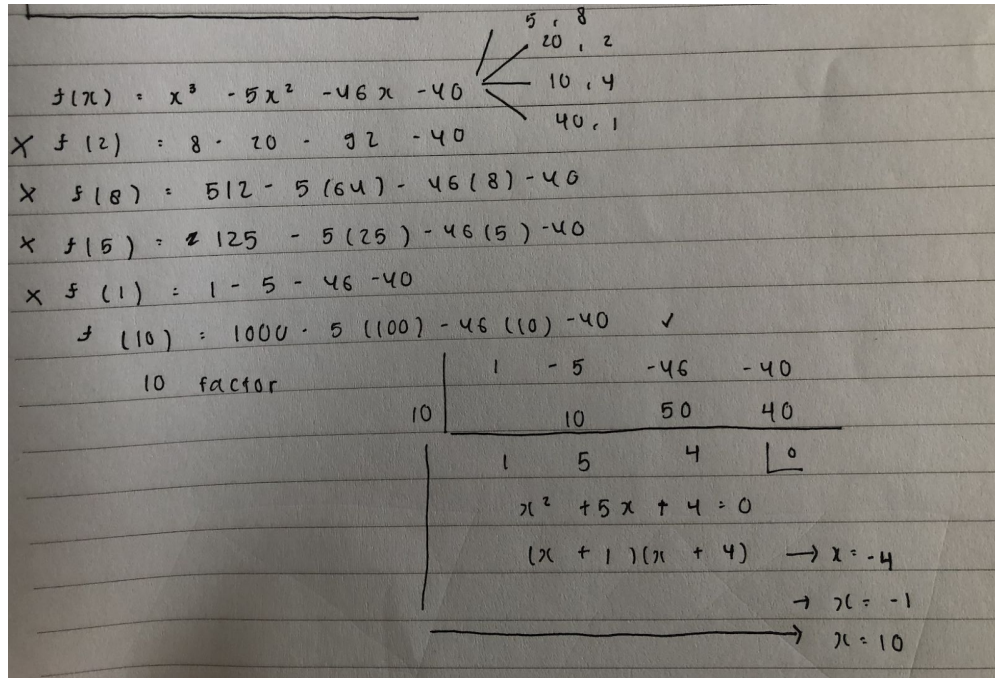 5, 8
20, 2
10, 4
40, 1
f(x) = x³ - 5x² - 46x - 40
× f(2) = 8 - 20 - 92 - 40
× f(8) = 512 - 5(64) - 46(8) - 40
× f(5) = 125 - 5(25) - 46(5) - 40
× f(1) = 1 - 5 - 46 - 40
f(10) = 1000 - 5(100) - 46(10) - 40 ✓
10 factor
1 -5 -46 -40
10 10 50 40
1 5 4 0
x² + 5x + 4 = 0
(x + 1)(x + 4) → x = -4
→ x = -1
→ x = 10